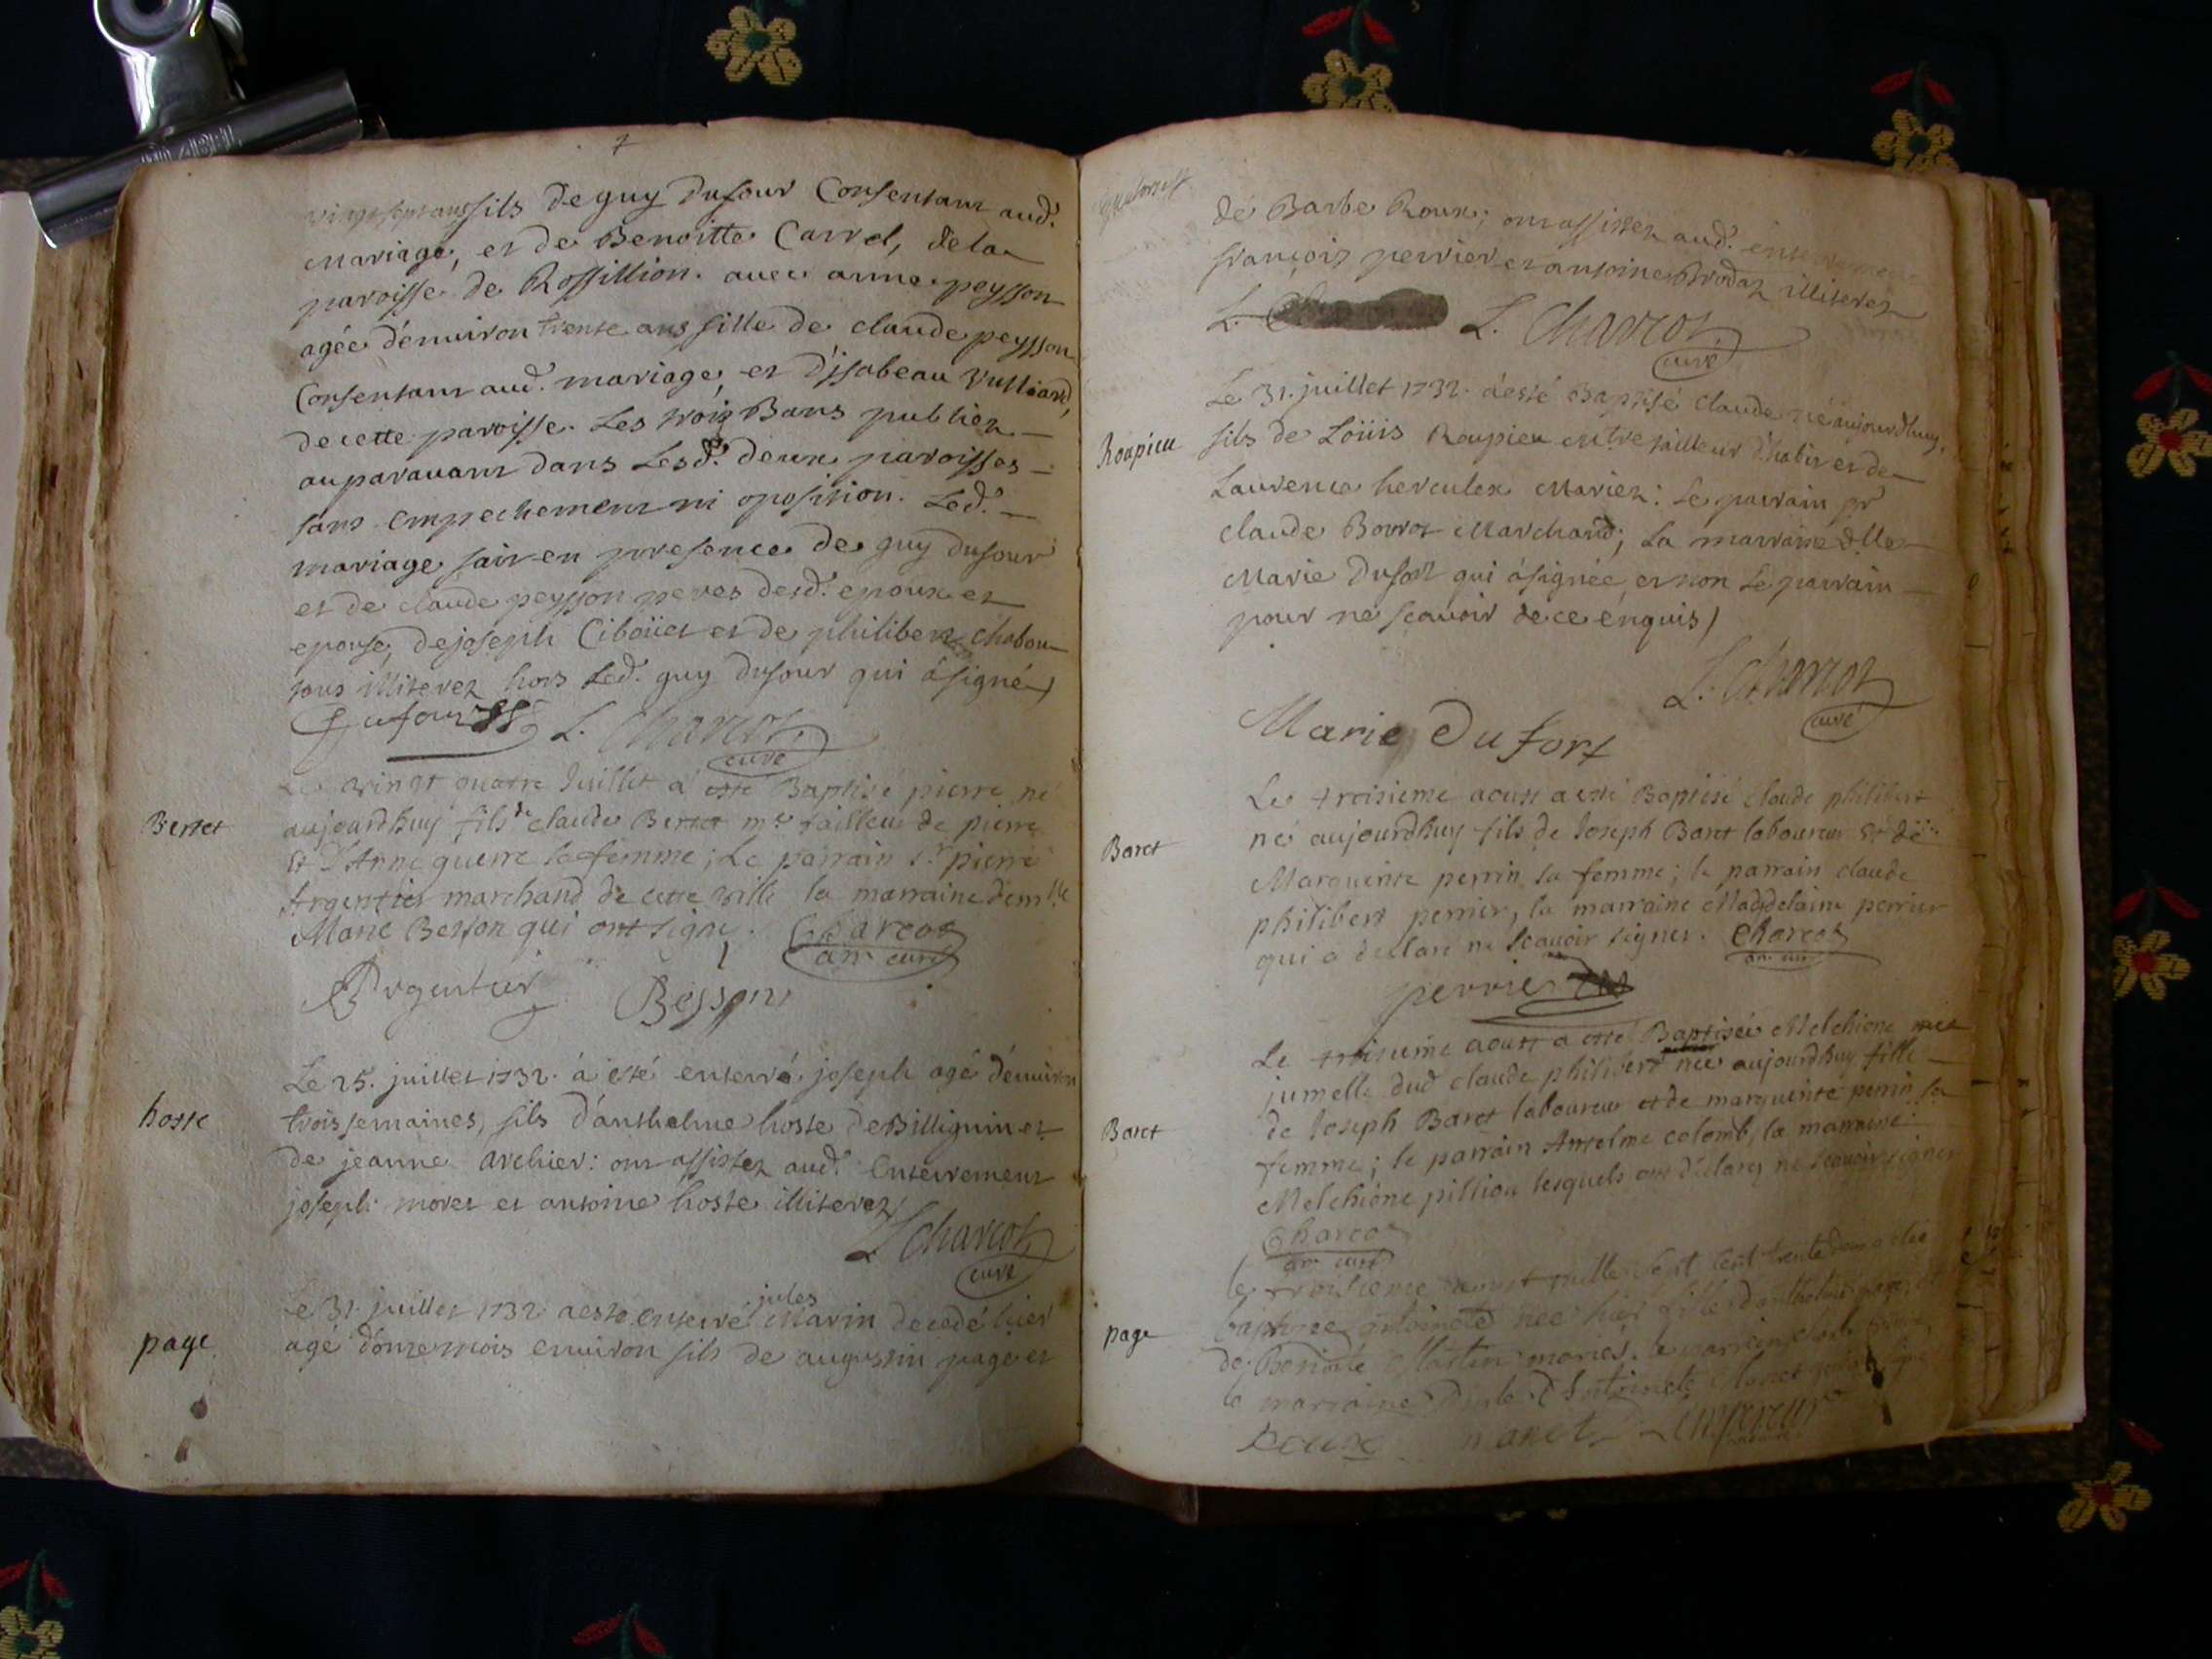 vingt sept ans fils de guy Dufour Consentant aud.
Mariage, et de Benoitte Carrel, de la
paroisse de Rossillion. avec anne peysson
agée d'environ trente ans fille de claude peysson
Consentant aud. mariage, et d'jsabeau Vulliard,
de cette paroisse. Les trois Bans publiez
auparavant dans Lesd. deux paroisses
sans empechement ni oposition. Led.
mariage fait en presence de guy dufour
et de claude peysson peres desd. epoux et
epouse, de joseph Cibouet et de philibert chabou
tous illiterez hors Led. guy dufour qui á signé)
Dufour L. Charcot
curé
Le vingt quatre Juillet a esté Baptisé pierre né
Berret
aujourdhuy fils de claude Berret me tailleur de pierre
et d'Anne guerre sa femme; Le parrain sr pierre
Argentier marchand de cette ville la marraine demlle
Marie Besson qui ont signé. Charcot
an. curé
Argentier Besson
Le 25. juillet 1732. á esté enterré joseph agé d'environ
hoste
trois semaines, fils d'anthelme hoste de Billignin et
de jeanne archier: ont assistez aud. Enterrement
joseph moret et antoine hoste illiterez
L Charcot
curé
jules
Le 31. juillet 1732 a esté enterré Marin decedé hier
page
agé d'onze mois environ fils de augustin page et
de Barbe Roux; ont assistez aud. enterrement
françois perrier et antoine Brodaz illiterez
L. L. Charcot
curé
Le 31. juillet 1732. á esté Baptisé claude né aujourdhuy,
Roupieu
fils de Loüis Roupieu me tailleur d'habit et de
Laurence hercules Mariez: Le parrain sr
claude Borrot Marchand; La marraine dlle
Marie Dufort qui á signée, et non Le parrain
pour ne scavoir de ce enquis)
L. Charcot
curé
Marie Dufort
Le troisieme aoust a esté Baptisé claude philibert
Baret
né aujourdhuy fils de Joseph Baret laboureur et de
Marguerite perrin sa femme; le parrain claude
philibert perrier, la marraine Maddelaine perrier
qui a declaré ne scavoir signer. Charcot
an. curé
perrier
Le troisieme aoust a esté Baptisée Melchione
jumelle dud claude philibert née aujourdhuy fille
Baret
de Joseph Baret laboureur et de marguerite perrin sa
femme; le parrain Antelme colomb, la marraine
Melchione pillion lesquels ont déclarez ne scavoir signer
Charcot
an. curé
le troisieme aoust mille sept cent trente deux a été
page
baptisée antoinete née hier fille d'anthelme page, et
de Benoite Martin mariés. le parrain
la marraine Antoinete Manet
Roux manet